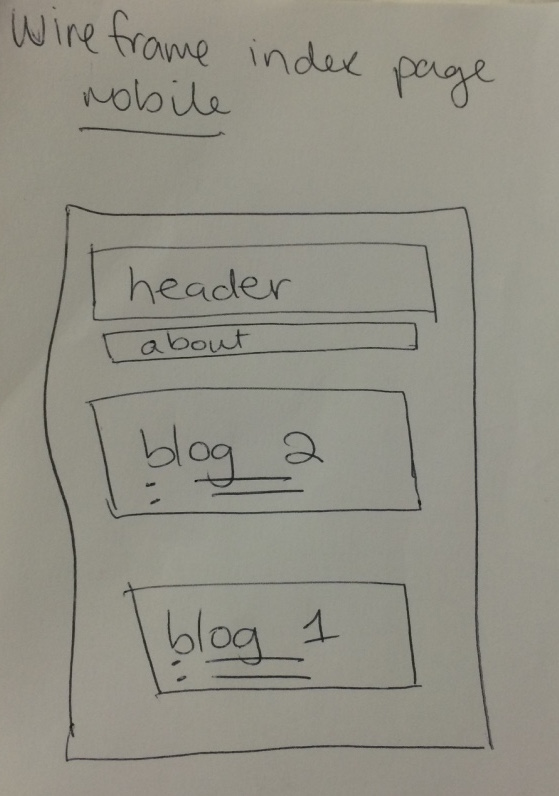 Wireframe index page
mobile
header
about
blog 2
blog 1